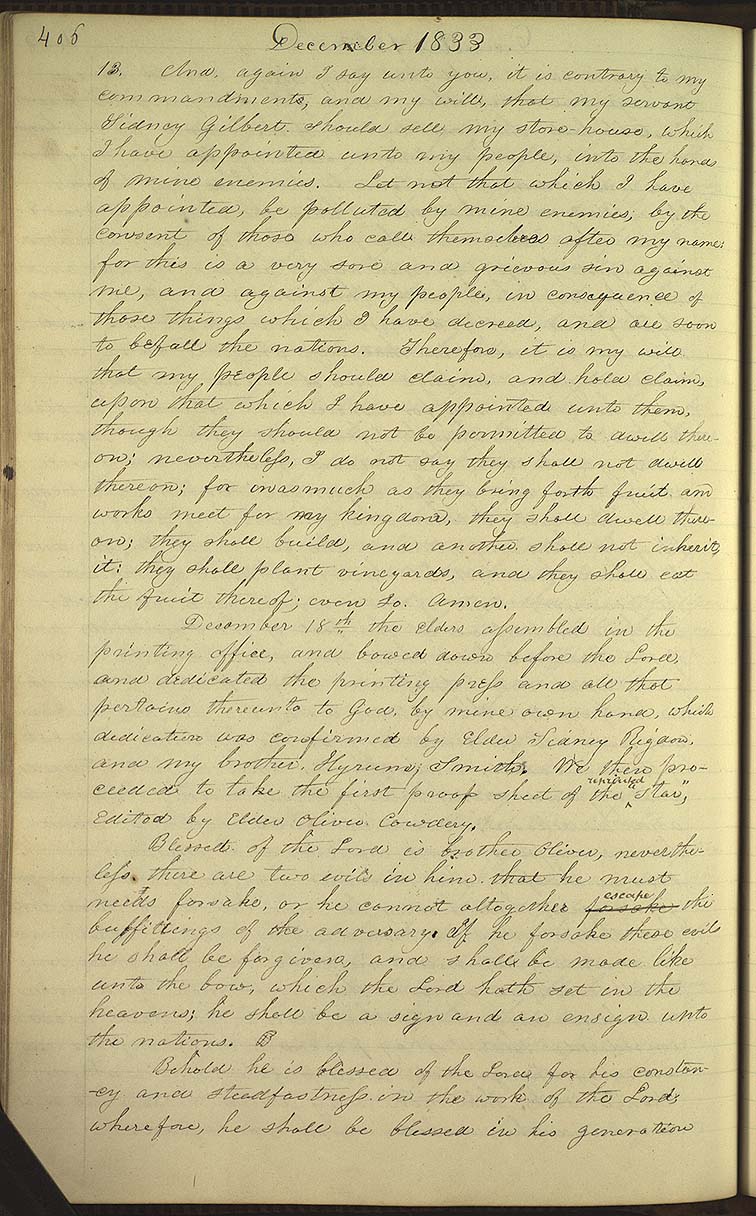 406
December 1833
13. And, again I say unto you, it is contrary to my
commandments, and my will, that my servant
Sidney Gilbert should sell my store-house, which
I have appointed unto my people, into the hands
of mine enemies. Let not that which I have
appointed, be polluted by mine enemies, by the
consent of those who call themselves after my name:
for this is a very sore and grievous sin against
me, and against my people, in consequence of
those things which I have decreed, and are soon
to befall the nations. Therefore, it is my will
that my people should claim, and hold claim,
upon that which I have appointed unto them,
though they should not be permitted to dwell there-
on; nevertheless, I do not say they shall not dwell
thereon; for inasmuch as they bring forth fruit and
works meet for my kingdom, they shall dwell there-
on; they shall build, and another shall not inherit
it: they shall plant vineyards, and they shall eat
the fruit thereof; even so. Amen.
December 18th the Elders assembled in the
printing office, and bowed down before the Lord,
and dedicated the printing press and all that
pertains thereunto to God, by mine own hand, which
dedication was confirmed by Elder Sidney Rigdon,
and my brother, Hyrum Smith. We then pro-
ceeded to take the first proof sheet of the reprinted "Star",
Edited by Elder Oliver Cowdery.
Blessed of the Lord is brother Oliver, neverthe-
less there are two evils in him that he must
needs forsake, or he cannot altogether forsake escape the
buffitings of the adversary. If he forsake these evils
he shall be forgiven, and shall be made like
unto the bow, which the Lord hath set in the
heavens; he shall be a sign and an ensign unto
the nations. B
Behold he is blessed of the Lord for his constan-
-cy and steadfastness in the work of the Lord;
wherefore, he shall be blessed in his generation